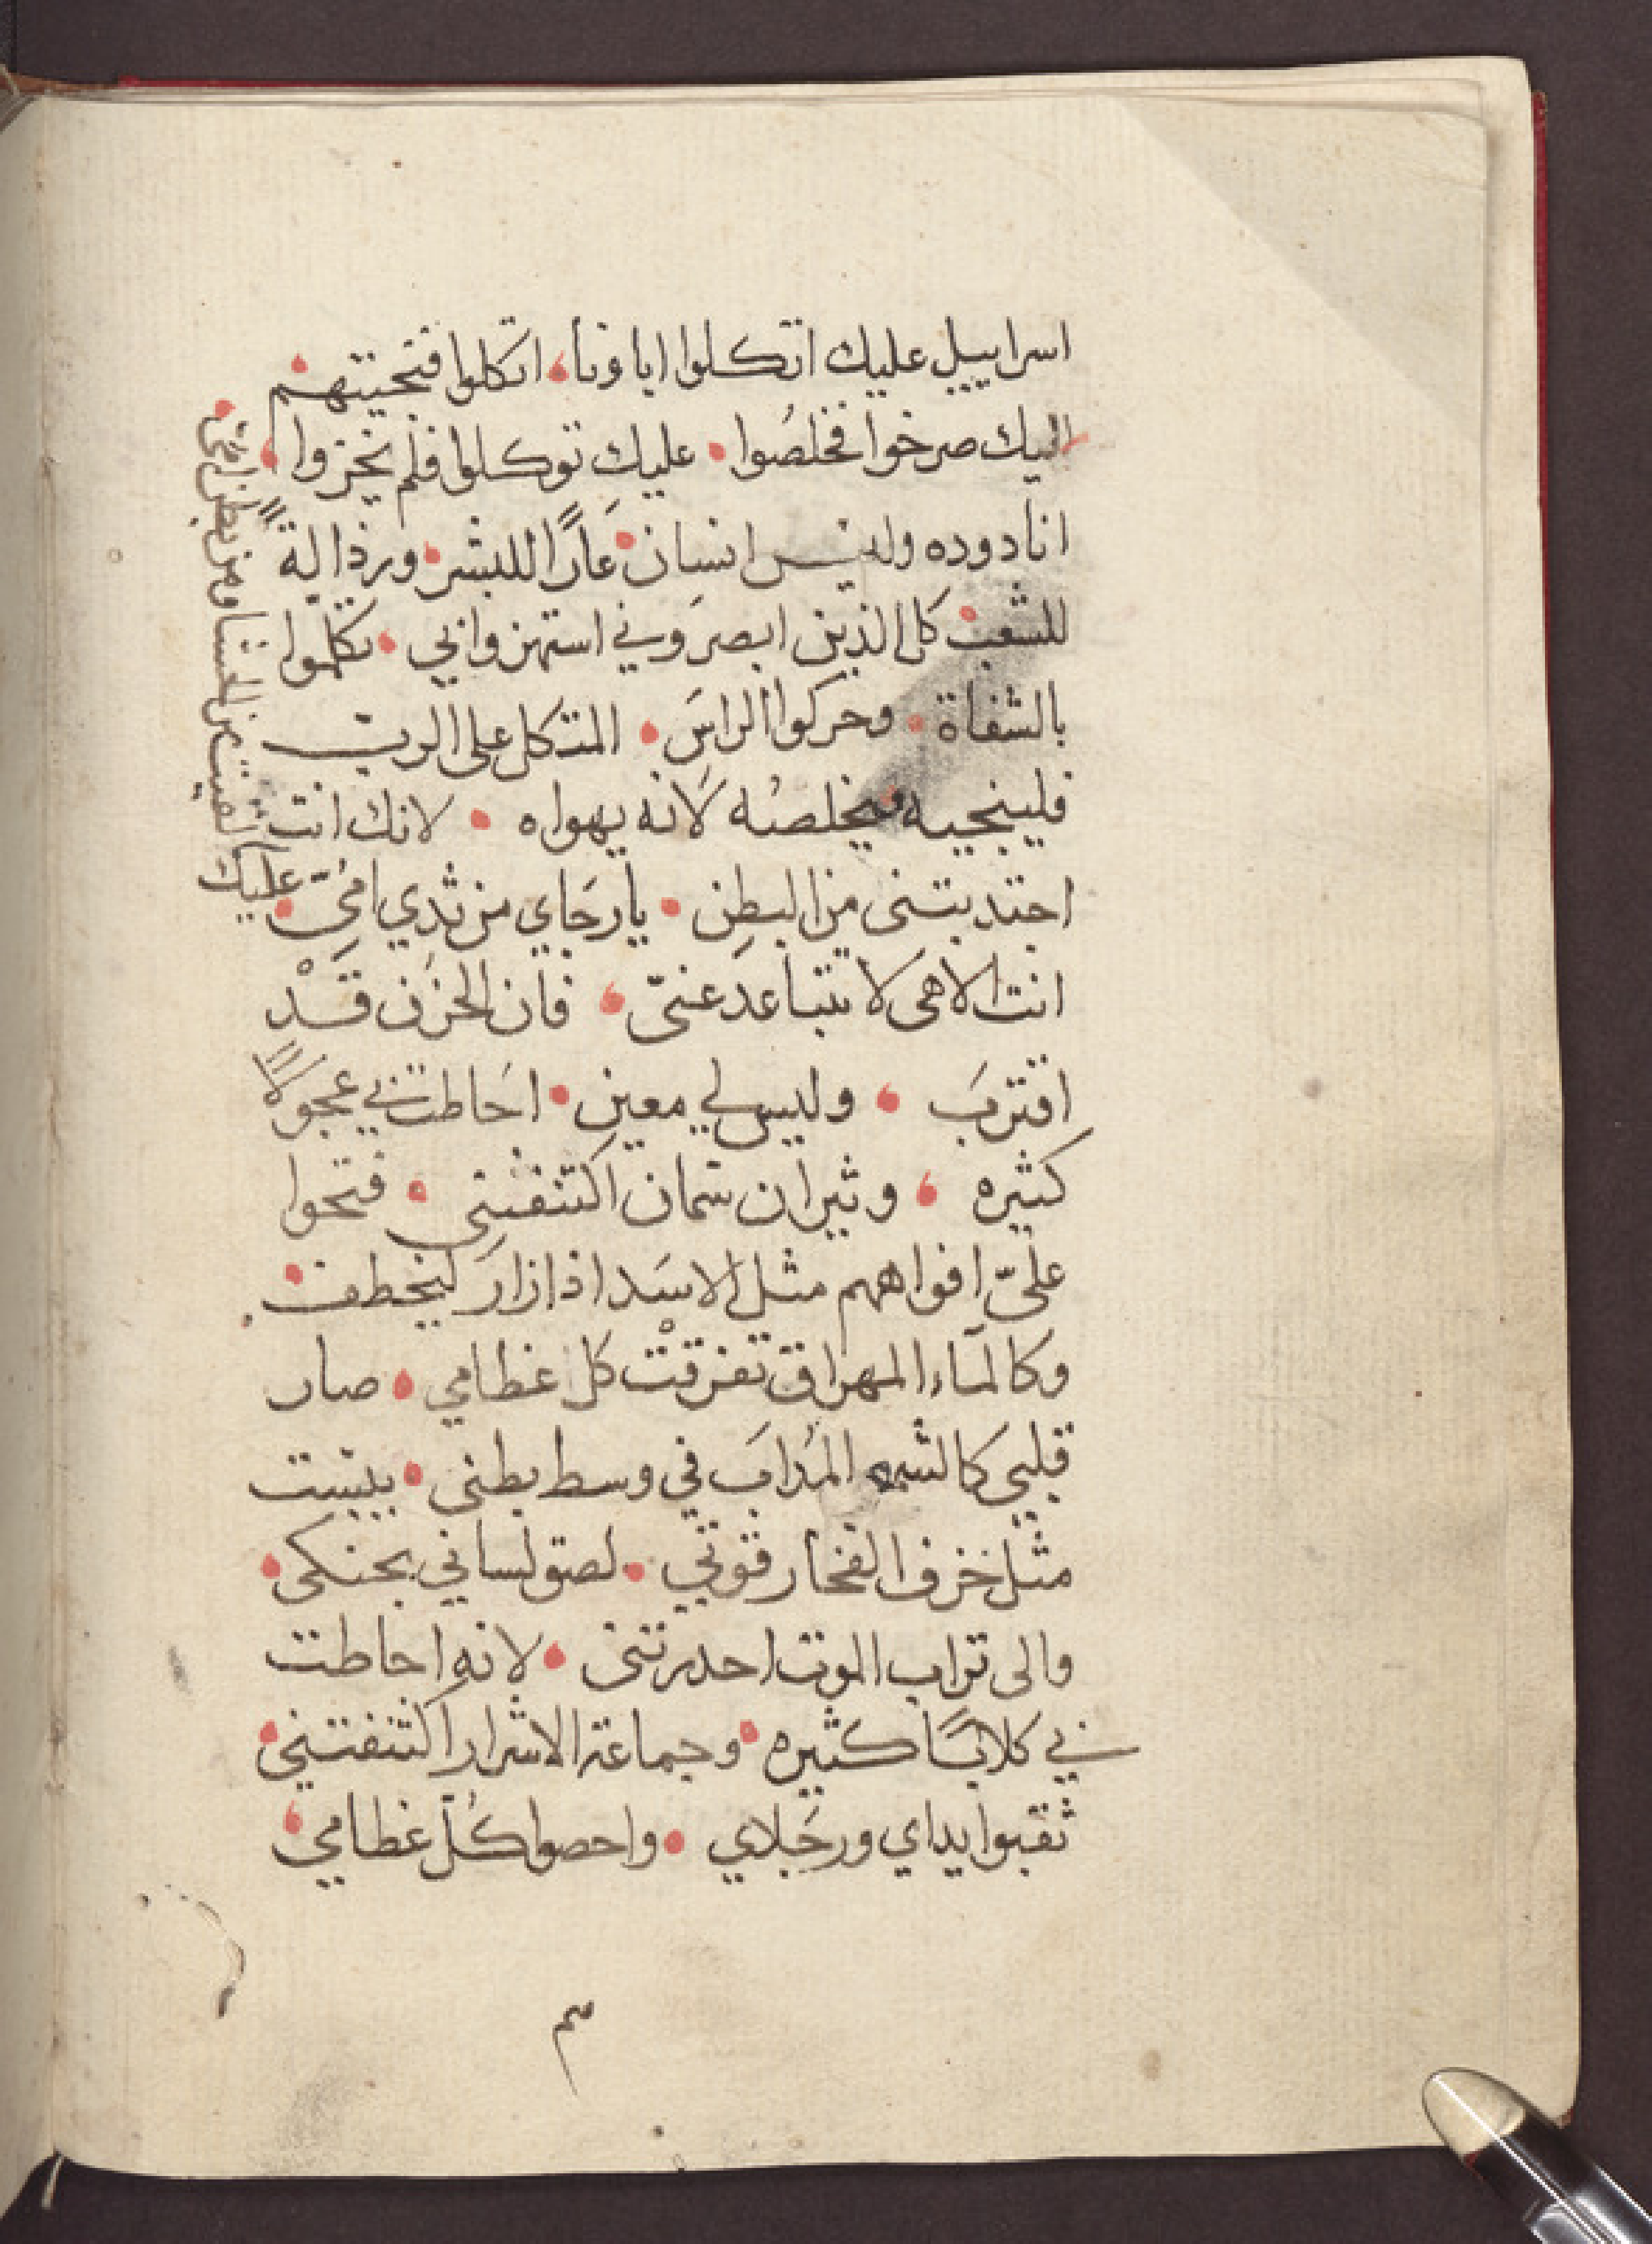 اسراييل عليك اتكلوا اباونا، اتكلوا فنجيتهم
اليك صرخوا فخلصُوا • عليك توكلوا فلم يخزوا،
انا دوده وليس انسان • عَارًا للبشر • ورذالةً
للشعب • كل الذين ابصرَوني استهزوا بي • تكلموا
بالشفاة • وحركوا الراسَ • المتكل على الربّ
فلينجيه ويخلصُه لَانه يهواه • لانك انت
اجتدبتنى من البطِن • يا رجَاي من ثدي امُيِّ •
عليك القيت من الحشا ومن بطن امّي •
انت الاهى لا تتباعد عنيّ، فان الحزَن قَدْ
اقتربَ، وليس لي معين • احَاطت بي عجولًا
كثيره، وثيران سمان اكتنفتنِي • فتحوا
علىّ افواههم مثل الاسَد اذا زارَ ليخطف •
وكالمآء المهراق تفرقتْ كل عظامي • صار
قلبي كالشمع المُدابَ في وسط بطنى • يبست
مثل خزف الفخار قوتي • لصق لساني بحنكى •
والى تراب الموت احدرتنى • لانه احاطت
بي كلابًا كثيره • وجماعة الاشرار اكتنفتني •
ثقبوا يداي ورجَلاي • واحصوا كُل عظامي،